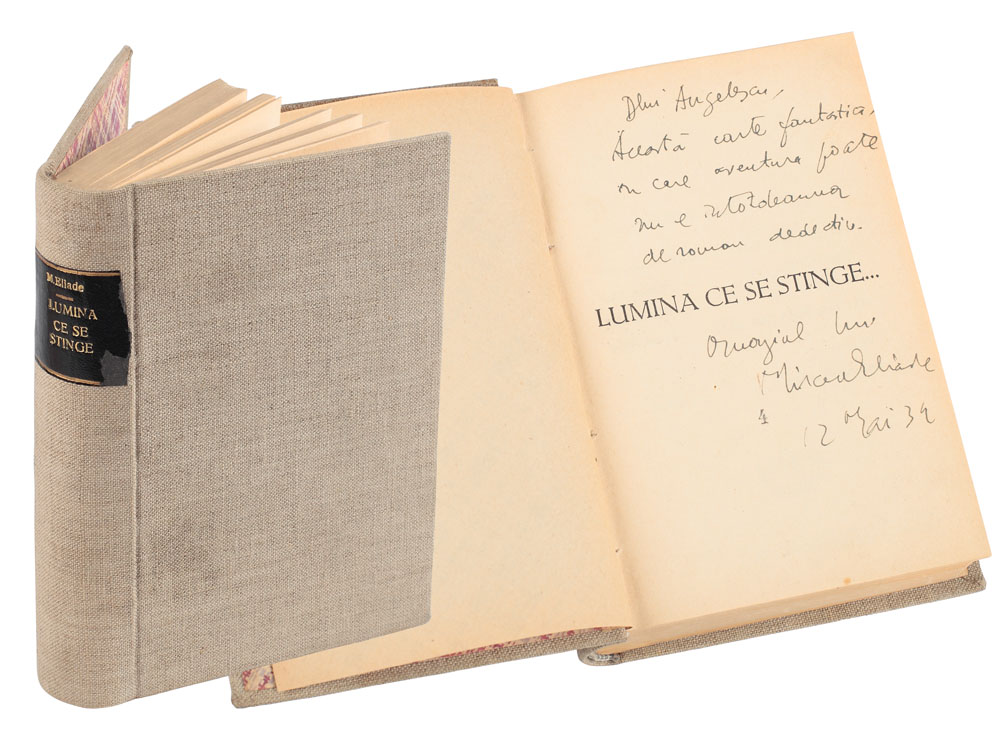 M. Eliade
LUMINA
CE SE
STINGE
Dlui Angelescu,
Această carte fantastica,
în care aventura poate
nu e întotdeauna
de roman dedectiv.
LUMINA CE SE STINGE...
Omagiul lui
Mircea Eliade
1
12 Mai 34